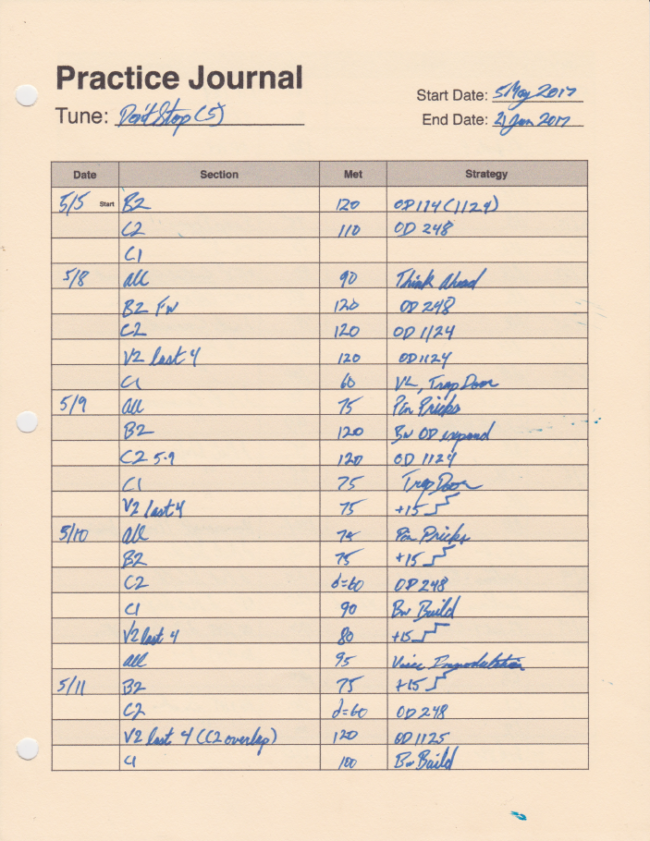 Practice Journal
Start Date: 5 May 2017
Tune: Don't Stop (5)
End Date: 21 Jun 2017
Date Section Met Strategy
5/5 Start B2 120 OD 114 (1124)
C2 110 OD 248
C1
5/8 all 90 Think Ahead
B2 FW 120 OD 248
C2 120 OD 1124
V2 last 4 120 OD 1124
C1 60 VL, Trap Door
5/9 all 75 Pin Pricks
B2 120 BW OD expand
C2 5-9 120 OD 1124
C1 75 Trap Door
V2 last 4 75 +15
5/10 all 74 Pin Pricks
B2 75 +15
C2 d=60 OD 248
C1 90 BW Build
V2 last 4 80 +15
all 95 Voice
5/11 B2 75 +15
C2 d=60 OD 248
V2 last 4 (C2 overlap) 120 OD 1125
C1 100 BW Build